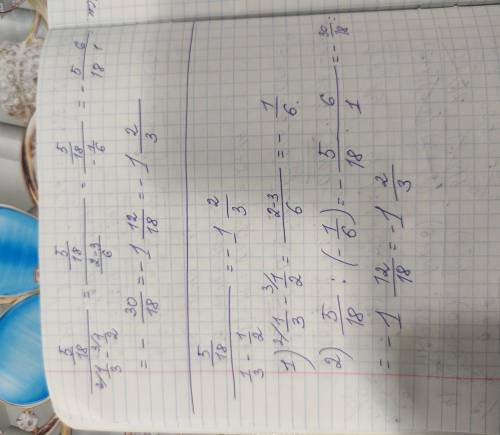 (5/18)/(²⁾1/3 - ³⁾1/2) = (5/18)/((2-3)/6) = (5/18)/(-1/6) = - 5/18 · 6/1 =
= - 30/18 = -1 12/18 = -1 2/3
(5/18)/(1/3 - 1/2) = -1 2/3
1) ²⁾1/3 - ³⁾1/2 = (2-3)/6 = - 1/6.
2) 5/18 : (-1/6) = - 5/18 · 6/1 = - 30/18 =
= -1 12/18 = -1 2/3